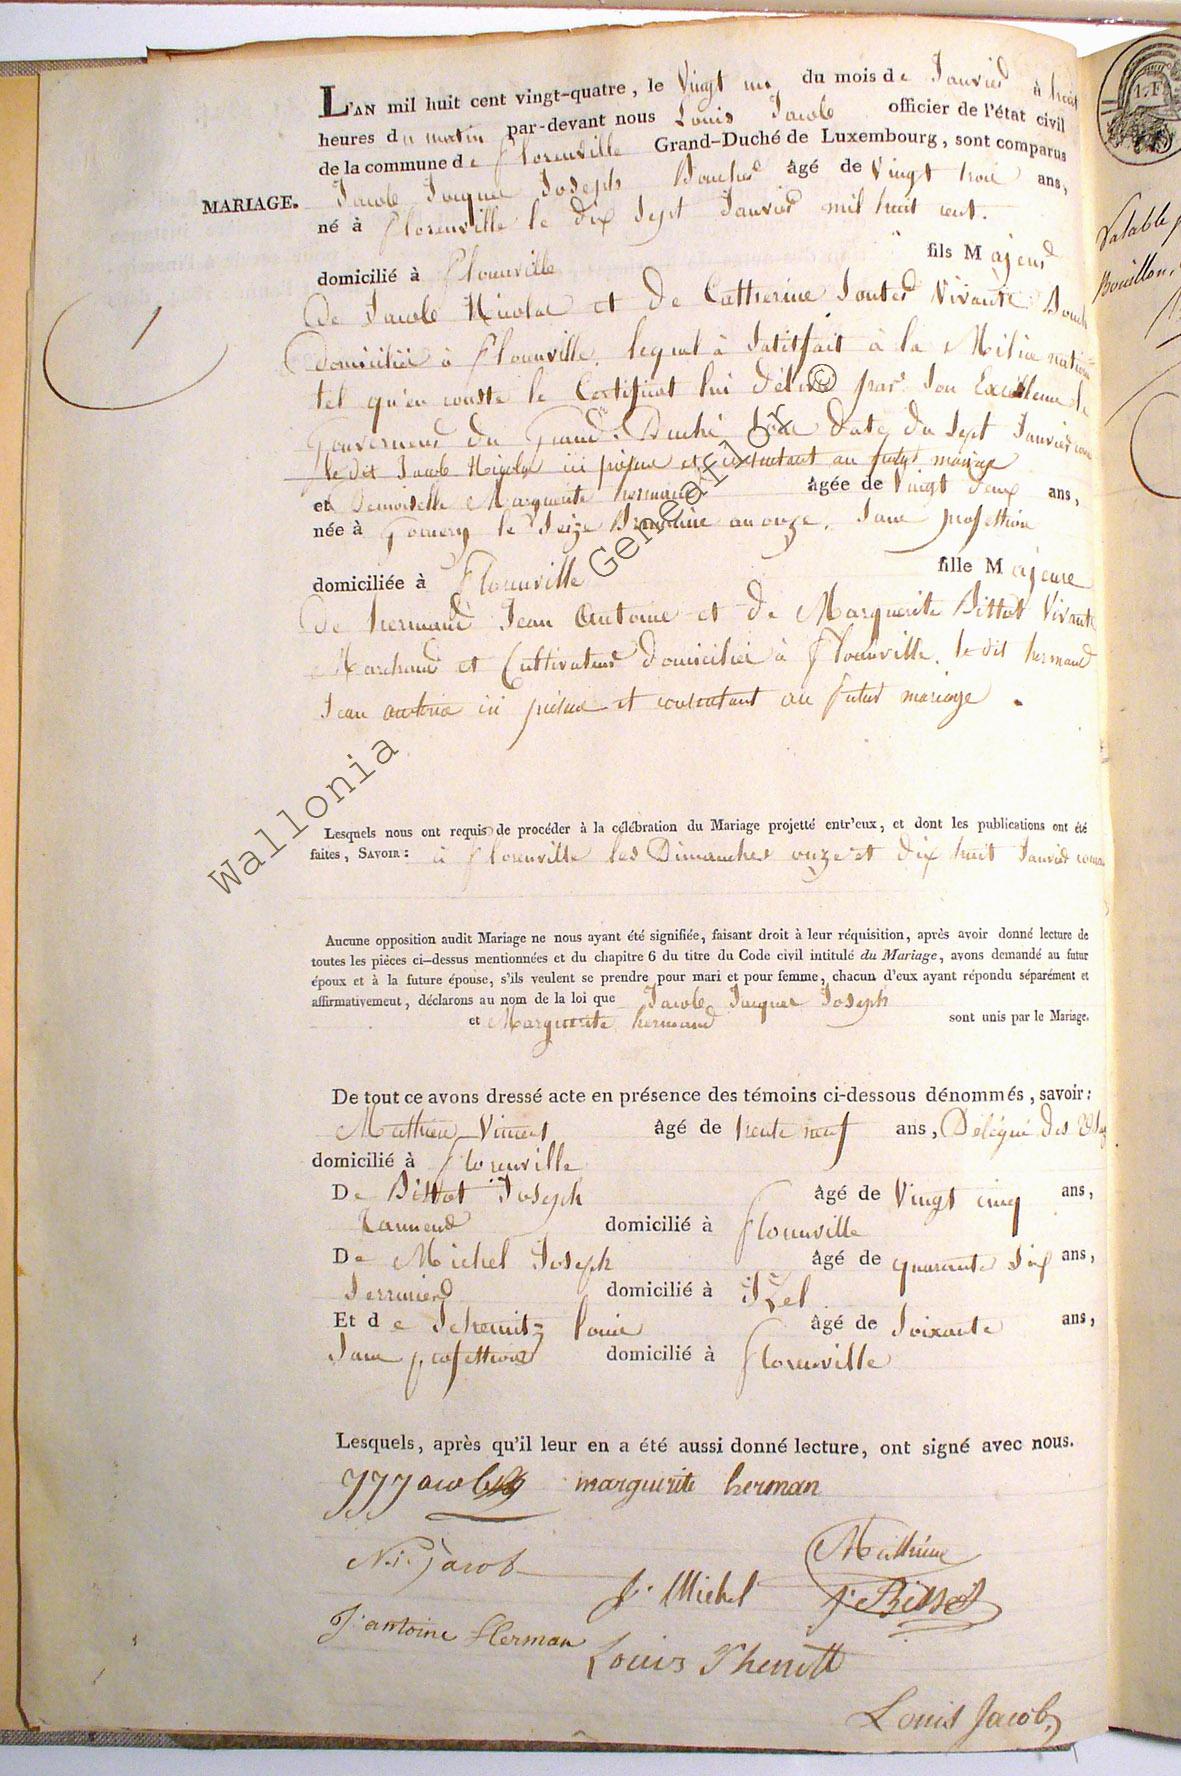 L'AN mil huit cent vingt-quatre, le Vingt un du mois de Janvier à huit
heures du matin par-devant nous Louis Jacob officier de l'état civil
de la commune de Florenville Grand-Duché de Luxembourg, sont comparus
MARIAGE.
Jacob Jacques Joseph Boucher âgé de Vingt trois ans,
né à Florenville le dix Sept Janvier mil huit cent.
domicilié à Florenville fils Majeur
1
De Jacob Nicolas et de Catherine Vivants
domiciliés à Florenville, lequel à Satisfait à la Milice
tel qu'en conste le Certificat lui délivré par Son Excellence le
Gouverneur du Grand-Duché Sous date du Sept Janvier
le dit Jacob Nicolas ici présent et consentant au futur mariage
et Demoiselle Marguerite hermand âgée de Vingt deux ans,
née à Gomery le Seize Brumaire an onze, Sans profession
domiciliée à Florenville fille Majeure
De hermand Jean Antoine et de Marguerite Bittot Vivants
Marchand et Cultivateur domiciliés à Florenville. le dit hermand
Jean antoine ici présent et consentant au futur mariage.
Lesquels nous ont requis de procéder à la célébration du Mariage projetté entr'eux, et dont les publications ont été
faites, SAVOIR: à Florenville les Dimanches onze et dix huit Janvier
Aucune opposition audit Mariage ne nous ayant été signifiée, faisant droit à leur réquisition, après avoir donné lecture de
toutes les pièces ci-dessus mentionnées et du chapitre 6 du titre du Code civil intitulé du Mariage, avons demandé au futur
époux et à la future épouse, s'ils veulent se prendre pour mari et pour femme, chacun d'eux ayant répondu séparément et
affirmativement, déclarons au nom de la loi que Jacob Jacques Joseph
et Marguerite hermand sont unis par le Mariage.
De tout ce avons dressé acte en présence des témoins ci-dessous dénommés, savoir:
Mathieu âgé de trente neuf ans, Délégué des
domicilié à Florenville
De Bittot Joseph âgé de Vingt cinq ans,
Tanneur domicilié à Florenville
De Michel Joseph âgé de quarante Six ans,
Serrurier domicilié à Izel
Et de louis âgé de Soixante ans,
Sans profession domicilié à Florenville
Lesquels, après qu'il leur en a été aussi donné lecture, ont signé avec nous.
JJJacob marguerite herman
N.i. jacob Mathieu
J. Michel
J. antoine Herman
Louis
Louis Jacob
Wallonia Geneaflor ©
Valable
Bouillon,